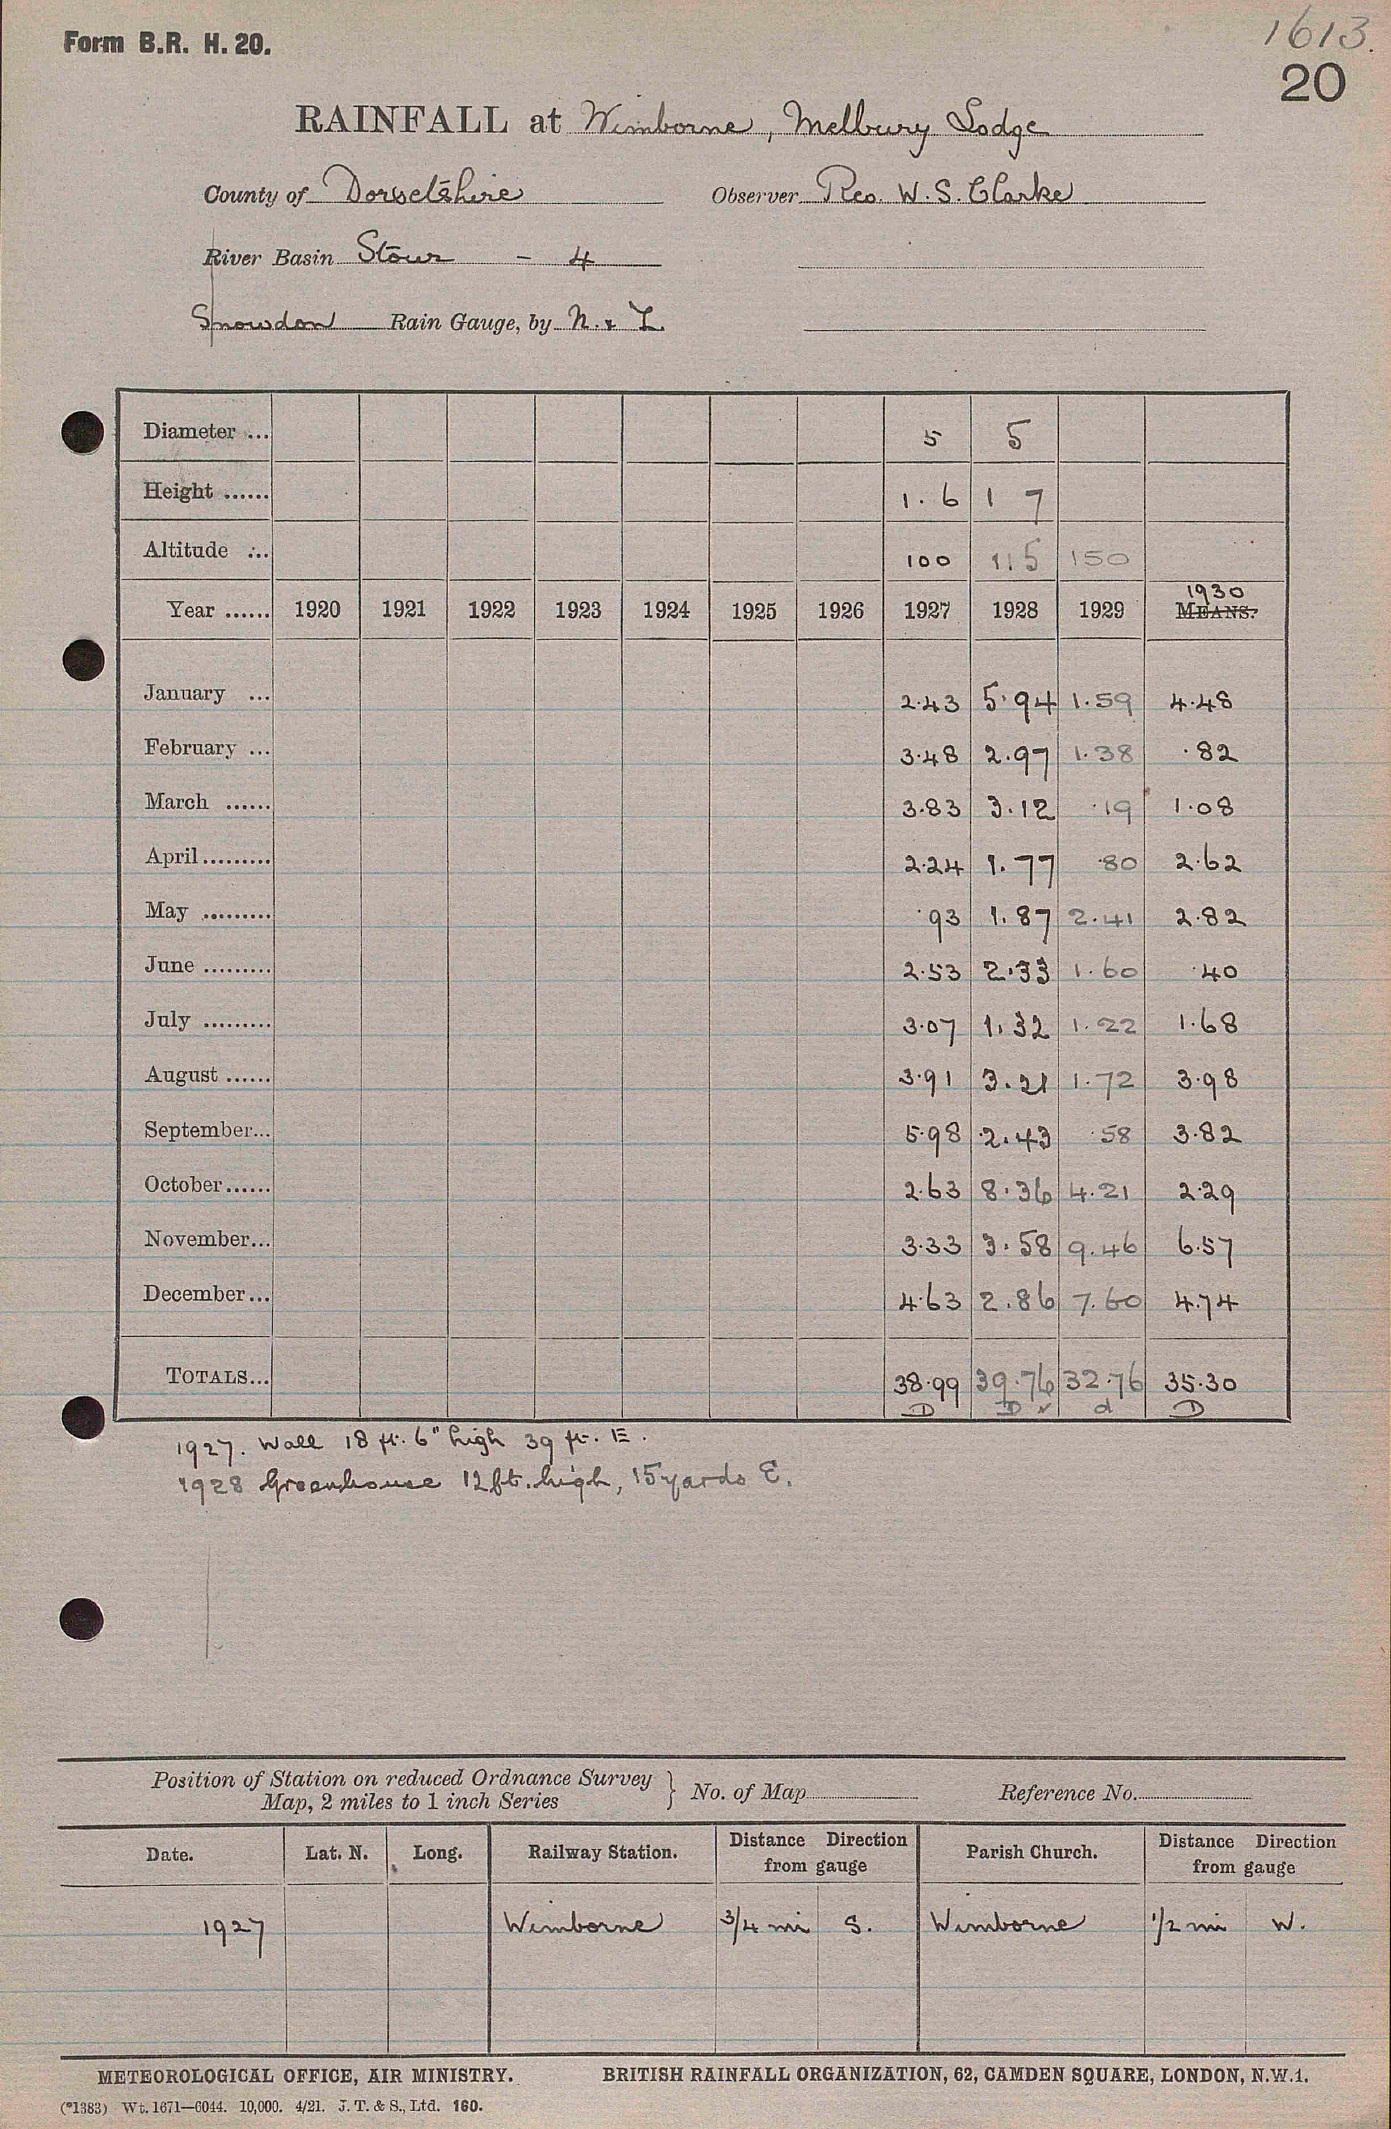 1613.
Form B.R. H. 20.
20
RAINFALL at Wimborne, Melbury Lodge
County of Dorsetshire Observer Rev. W. S. Clarke
River Basin Stour - 4
Snowdon Rain Gauge, by N. & Z.
Diameter ... 5 5
Height ...... 1. 6 1 7
Altitude ... 100 115 150
1930
Year ...... 1920 1921 1922 1923 1924 1925 1926 1927 1928 1929 MEANS.
January ... 2.43 5.94 1.59 4.48
February ... 3.48 2.97 1.38 .82
March ...... 3.83 3.12 .19 1.08
April ......... 2.24 1.77 .80 2.62
May ......... .93 1.87 2.41 2.82
June ......... 2.53 2.33 1.60 .40
July ......... 3.07 1.32 1.22 1.68
August ...... 3.91 3.21 1.72 3.98
September... 5.98 2.43 .58 3.82
October...... 2.63 8.36 4.21 2.29
November... 3.33 3.58 9.46 6.57
December... 4.63 2.86 7.60 4.74
TOTALS... 38.99 39.76 32.76 35.30
D D d D
1927. Wall 18 ft. 6" high 39 ft. E.
1928 Greenhouse 12 ft. high, 15 yards E.
Position of Station on reduced Ordnance Survey
Map, 2 miles to 1 inch Series } No. of Map Reference No.
Date. Lat. N. Long. Railway Station. Distance Direction from gauge Parish Church. Distance Direction from gauge
1927 Wimborne 3/4 mi S. Wimborne 1/2 mi W.
METEOROLOGICAL OFFICE, AIR MINISTRY. BRITISH RAINFALL ORGANIZATION, 62, CAMDEN SQUARE, LONDON, N.W.1.
(*1383) Wt. 1671—6044. 10,000. 4/21. J. T. & S., Ltd. 160.